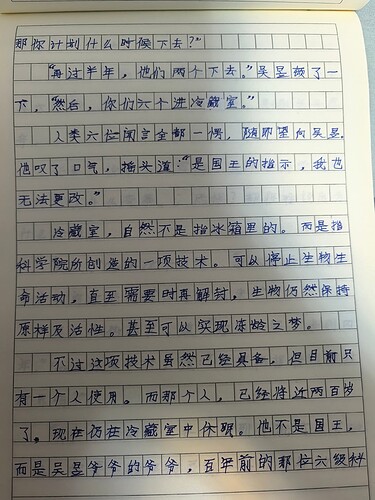 那你计划什么时候下去？”
“再过半年，他们两个下去。”吴昱顿了一
下，“然后，你们六个进冷藏室。”
人类六位闻言全都一愣，随即望向吴昱。
他叹了口气，摇头道：“是国王的指示，我也
无法更改。”
冷藏室，自然不是指冰箱里的。而是指
科学院所创造的一项技术。可以停止生物生
命活动，直至需要时再解封，生物仍然保持
原样及活性。甚至可以实现冻龄之梦。
不过这项技术虽然已经具备，但目前只
有一个人使用。而那个人，已经将近两百岁
了。现在仍在冷藏室中休眠。他不是国王，
而是吴昱爷爷的爷爷，百年前的那位六级科